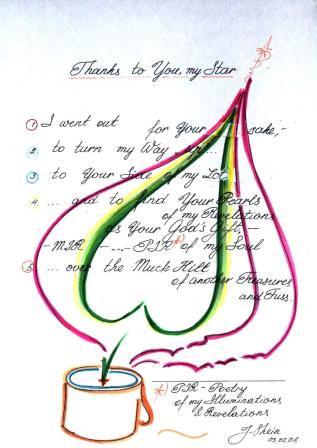 Thanks to You, my Star
1 I went out for Your sake,-
2. to turn my Way up...
3 to Your Side of my Lot
4 ... and to find Your Pearls
of my Revelations
as Your God's Gift, –
- MIR - ... - PIR *) of my Soul
5 ... over the Muck Hill
of another Treasures
and Fuss.
*) PIR - Poetry
of my Illuminations
& Revelations
J. Shein
03.02.08